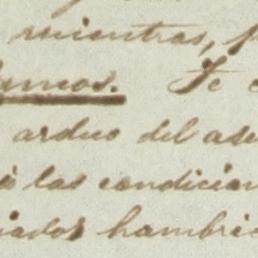 mientras, p
umos. Te e
arduo del ase
ó las condicion
iados hambrie